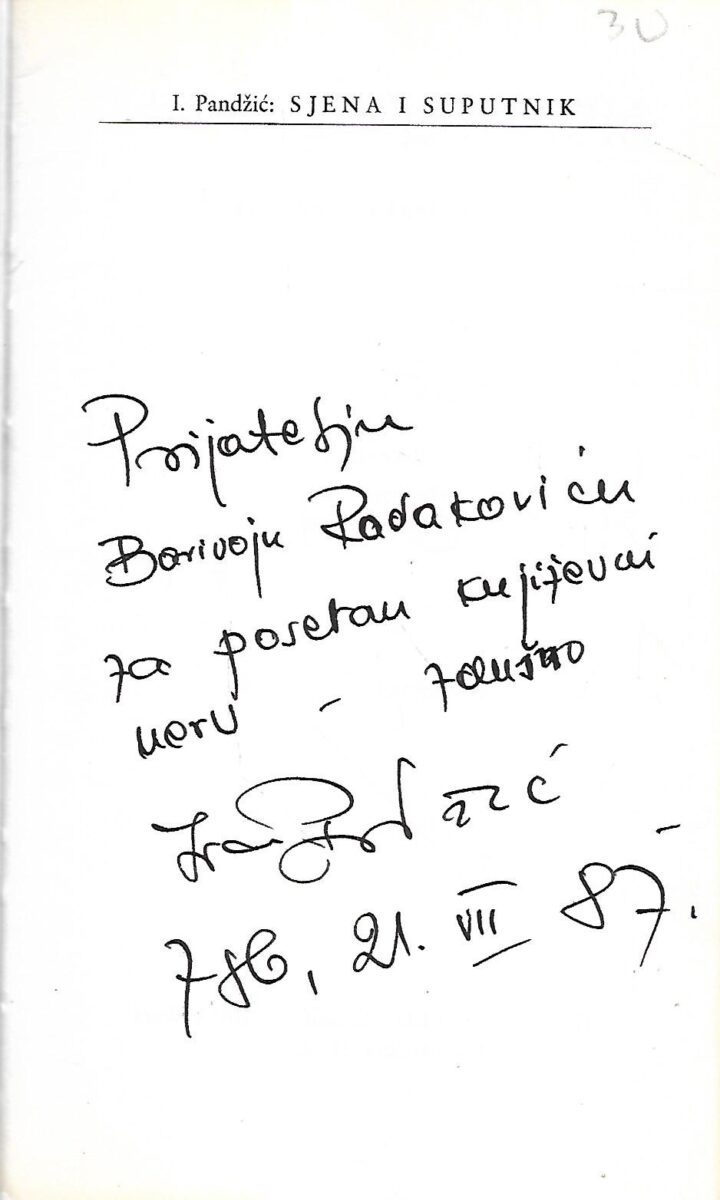 30
I. Pandžić: SJENA I SUPUTNIK
Prijatelju
Borivoju Radakoviću
za poseban književni
nerv – zdušno
Ivan Pandžić
Zgb, 21. VII 87.